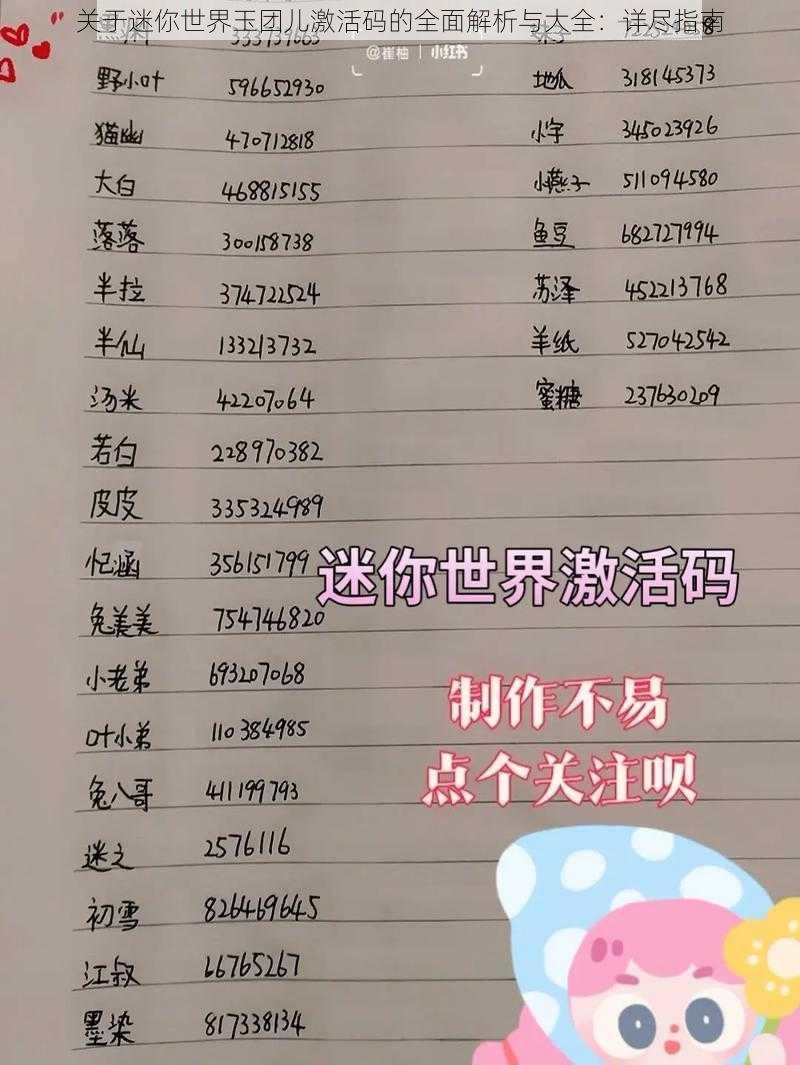 关于迷你世界玉团儿激活码的全面解析与大全：详尽指南
@崔柚 | 小红书
野小叶 596652930
地瓜 318145373
猫幽 470712818
小字 345023926
大白 468815155
小燕子 511094580
落落 300158738
鱼豆 682727994
半拉 374722524
苏泽 452213768
半仙 133213732
羊纸 527042542
汤米 42207064
蜜糖 237630209
若白 228970382
皮皮 335324989
忆涵 356151799
迷你世界激活码
兔美美 754746820
小老弟 693207068
制作不易
叶小弟 110384985
点个关注呗
兔八哥 411199793
迷之 2576116
初雪 826469645
江叔 66765267
墨染 817338134